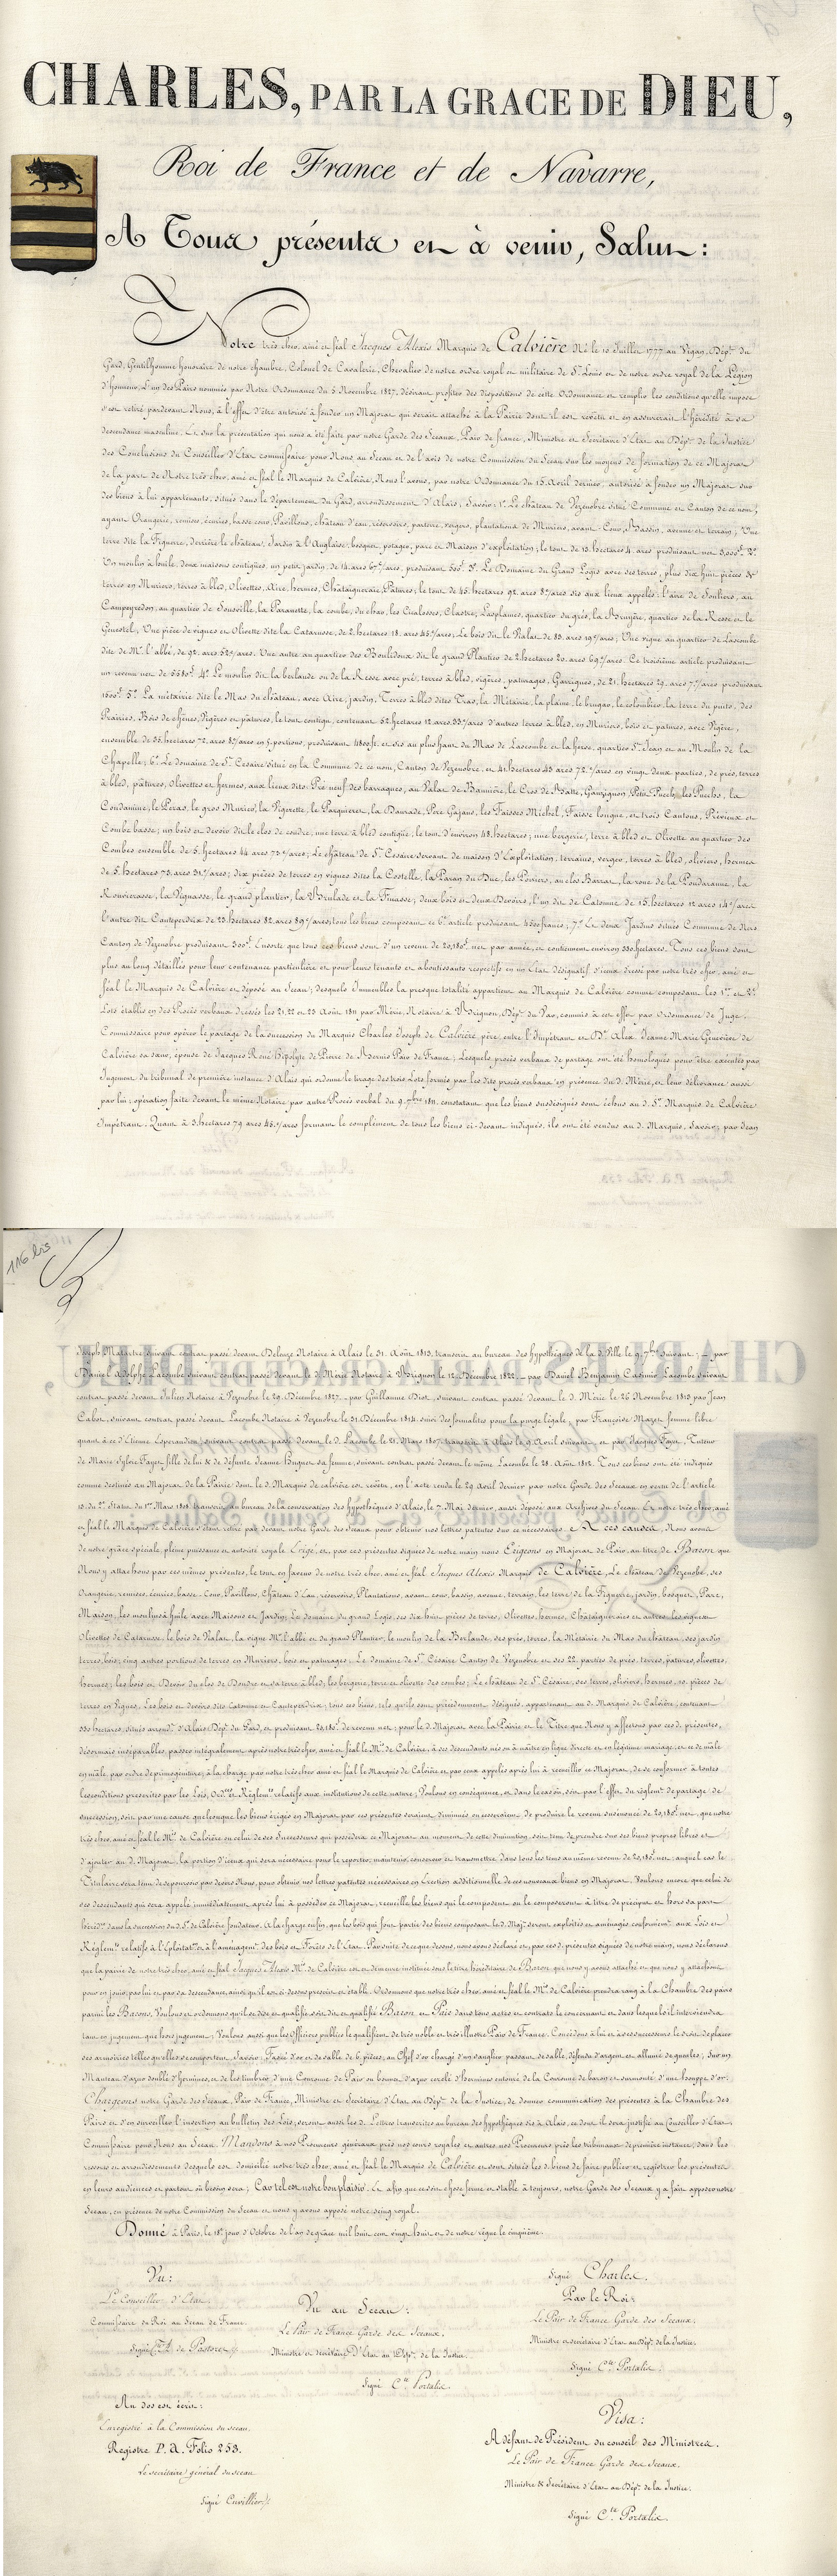 CHARLES, PAR LA GRACE DE DIEU,
Roi de France et de Navarre,
A Tous présents et à venir, Salut :
Notre très cher, amé et féal Jacques Alexis Marquis de Calvière Né le 10 Juillet 1777 au Vigan, Dép.t du
Gard, Gentilhomme honoraire de notre chambre, Colonel de Cavalerie, Chevalier de notre ordre royal et militaire de S.t Louis et de notre ordre royal de la Légion
d'honneur, L'un des Pairs nommés par Notre Ordonnance du 5 Novembre 1827, désirant profiter des dispositions de cette Ordonnance et remplir les conditions qu'elle impose
s'est retiré pardevant Nous, à l'effet d'être autorisé à fonder un Majorat qui serait attaché à la Pairie dont il est revêtu et en assurerait l'hérédité à sa
descendance masculine. Et sur la présentation qui nous a été faite par notre Garde des Sceaux, Pair de france, Ministre et Secrétaire d'Etat au Dép.t de la Justice
des Conclusions du Conseiller d'Etat commissaire pour Nous au Sceau et de l'avis de notre Commission du Sceau sur les moyens de formation de ce Majorat
de la part de Notre très cher, amé et féal le Marquis de Calvière, Nous l'avons, par notre Ordonnance du 13 Avril dernier, autorisé à fonder un Majorat sur
des biens à lui appartenants, situés dans le département du Gard, arrondissement d'Alais, Savoir : 1.° Le château de Vezenobre situé Commune et Canton de ce nom,
ayant Orangerie, remises, écuries, basse cour, Pavillons, château d'eau, réservoirs, parterre, vergers, plantations de Muriers, avant-Cour, Bassin, avenue et terrain ; Une
terre dite la Figuière, derrière le château, Jardin à l'Anglaise, bosquet, potager, parc et Maison d'exploitation ; le tout de 13 hectares 4 ares produisant net 3,000.f 2.°
Un moulin à huile, deux maisons contigües, un petit jardin, de 14 ares 67 c/ares, produisant 500.f 3.° Le Domaine du Grand Logis avec des terres, plus dix huit pièces de
terres en Muriers, terres à bled, Olivettes, Aire, hermes, Châtaigneraie, Pâtures ; le tout de 45 hectares 92 ares
Campeyredon, au quartier de Sousville, la Paramotte, la combe, du chao, les Cicalosses, Clastre, Lasplaines, quartier du grès, la Bruyère, quartier de la Resse et le
Genestel, Une pièce de vignes et Olivette dite la Catarusse, de 2 hectares 18 ares 45 c/ares, Le bois dit le Valat de 85 ares 19 c/ares ; Une vigne au quartier de Lascombe
dite de M.r l'abbé, de 92 ares 52 c/ares. Une autre au quartier des Bouledoux dit le grand Plantier de 2 hectares 20 ares 69 c/ares. Ce troisième article produisant
un revenu net de 4.° Le moulin dit la berlande ou de la Resse avec pré, terres à bled, vigères, paturages, Garrigues, de 21 hectares 29 ares 7 c/ares produisant
1600.f 5.° La métairie dite le Mas du château, avec Aire, jardin, Terres à bled dites Tras, la Métairie, la plaine, le brugas, le colombier, la terre du puits, des
Prairies, Bois de chênes, Vigères et pâtures, le tout contigu, contenant 52 hectares 12 ares 33 c/ares d'autres terres à bled, en Muriers, bois et patures, avec Vigère,
ensemble de 35 hectares 72 ares 8 c/ares en 5 portions, produisant 4800.f et sis au plus haut du Mas de Lascombe et la feroz, quartier S.t Jean et au Moulin de la
Chapelle ; 6.° Le domaine de S.t Cesaire situé en la Commune de ce nom, Canton de Vezenobre, et 41 hectares 43 ares 72 c/ares en vingt deux parties, de prés, terres
à bled, pâtures, Olivettes et hermes, aux lieux dits : Pré neuf des barraques, au Valat de Bannière, le Cros de Batte, Gauvignon, Petit Puech, les Puechs, la
Condamine, le Peras, le gros Murier, la Vigerette, le Parquieret, la Daurade, Pere Gazano, les Faisses Michel, Faisse longue, et trois Cantons, Périeux et
Combe basse ; un bois et devoir dit le clos de coudre, une terre à bled contigüe, le tout d'environ 48 hectares ; une bergerie, terre à bled et Olivette au quartier des
Combes ensemble de 5 hectares 44 ares 73 c/ares ; Le château de S.t Cesaire servant de maison d'Exploitation, terrains, verger, terres à bled, oliviers, hermes
de 5 hectares 75 ares 31 c/ares ; dix pièces de terres en vignes dites la Costelle, la Paran du Duc, les Poiriers, au clos Barrat, la roue de la Poudaranne, la
Rouvierasse, la Vignasse, le grand plantier, la Brulade et la Finasse ; deux bois et deux Devoirs, l'un dit de Catonne de 15 hectares 12 ares 14 c/ares
l'autre dit Canteperdrix de 23 hectares 82 ares 89 c/ares, tous les biens composant ce 6.e article produisant 4500 francs ; 7.° Et deux Jardins situés Commune de Ners
Canton de Vezenobre produisant 300.f Ensorte que tous ces biens sont d'un revenu de 20,180.f net par année, et contiennent environ 330 hectares. Tous ces biens sont
plus au long détaillés pour leur contenance particulière et pour leurs tenants et aboutissants respectifs en un Etat désignatif d'iceux dressé par notre très cher, amé et
féal le Marquis de Calvière et déposé au Sceau ; desquels Immeubles la presque totalité appartient au Marquis de Calvière comme composant les 1.er et 2.e
Lots établis en des Procès verbaux dressés les 21, 22 et 23 Août 1811 par Mérie, Notaire à Vedrignon, Dép.t du Var, commis à cet effet par Ordonnance de Juge-
Commissaire pour opérer le partage de la succession du Marquis Charles Joseph de Calvière père entre l'Impétrant et D.e Alex. Jeanne Marie Geneviève de
Calvière sa sœur, épouse de Jacques René Hipolyte de Pierre de Bernis Pair de France ; Lesquels procès verbaux de partage ont été homologués pour être exécutés par
Jugement du tribunal de première instance d'Alais qui ordonne le tirage des trois Lots formés par les dits procès verbaux en présence du d. Mérie, et leur délivrance aussi
par lui ; opération faite devant le même Notaire par autre Procès verbal du 9 .bre 1811, constatant que les biens susdésignés sont échus au d. S.r Marquis de Calvière
Impétrant. Quant à 3 hectares 79 ares 45 c/ares formant le complément de tous les biens ci-devant indiqués, ils ont été vendus au d. Marquis, Savoir ; par Jean
116 bis
Joseph Malartre suivant contrat passé devant Deleuze Notaire à Alais le 31 Août 1813, transcrit au bureau des hypothèques de la d. Ville le 9 7.bre suivant ; - par
Daniel Adolphe Lacombe suivant contrat passé devant le d. Mérie Notaire à Vedrignon le 12 Décembre 1822 - par Daniel Benjamin Casimir Lacombe suivant
contrat passé devant Julien Notaire à Vezenobre le 29 Décembre 1827 - par Guillaume Biot, suivant contrat passé devant le d. Mérie le 26 Novembre 1813 par Jean
Cabot, suivant contrat passé devant Lacombe Notaire à Vezenobre le 31 Décembre 1814, suivi des formalités pour la purge légale, par Françoise Mazet femme libre
quant à ce d'Etienne Lsperandieu, suivant contrat passé devant le d. Lacombe le 21 Mars 1807, transcrit à Alais le 9 Avril suivant, et par Jacques Fayet, Tuteur
de Marie Sylvie Fayet fille de lui & de défunte Jeanne Buguet sa femme, suivant contrat passé devant le même Lacombe le 28 Août 1812. Tous ces biens ont été indiqués
comme destinés au Majorat de la Pairie dont le d. Marquis de calvière est revêtu, en l'acte rendu le 29 Avril dernier par notre Garde des Sceaux en vertu de l'article
13 du 2.e Statut du 1.er Mars 1808 transcrit au bureau de la conservation des hypothèques d'Alais, le 7 Mai dernier, aussi déposé aux Archives du Sceau. Et notre très cher, amé
et féal le Marquis de Calvière s'étant retiré par devant notre Garde des Sceaux pour obtenir nos lettres patentes sur ce nécessaires, A CES causes, Nous avons
de notre grâce spéciale, pleine puissance et autorité royale Erigé, et, par ces présentes signées de notre main nous Erigeons en Majorat de Pair, au titre de Baron que
Nous y attachons par ces mêmes présentes, le tout en faveur de notre très cher, amé et féal Jacques Alexis Marquis de Calvière, Le château de Vezenobre, ses
Orangerie, remises, écuries, basse-Cour, Pavillons, Château d'Eau, réservoirs, Plantations, avant-cour, bassin, avenue, terrain, les terre de la Figuière, jardin, bosquet, Parc,
Maison, les moulins à huile avec Maisons et Jardin, Le domaine du grand Logis, ses dix huit pièces de terres, Olivettes, hermes, Châtaigneraies et autres, les vignes et
Olivettes de Catarusse, le bois de Valat, la vigne M.r l'abbé et du grand Plantier, le moulin de la Berlande, ses prés, terres, la Métairie du Mas du château, ses jardin
terres, bois, cinq autres portions de terres en Muriers, bois et paturages. Le domaine de S.t Césaire Canton de Vezenobre et ses 22 parties de prés, terres, patures, olivettes,
hermes ; les bois et Devois du clos de Coudre et sa terre à bled ; les bergerie, terre et olivette des combes ; Le château de S.t Césaire, ses terres, oliviers, hermes, 10 pièces de
terres en Vignes, Les bois et devois dits Catonne et Canteperdrix ; tous ces biens, tels qu'ils sont précédemment désignés, appartenant au d. Marquis de Calvière, contenant
330 hectares, situés arrond.t d'Alais Dép.t du Gard, et produisant 20,180.f de revenu net ; pour le d. Majorat avec la Pairie et le Titre que Nous y affectons par ces d. présentes,
désormais inséparables, passer intégralement après notre très cher, amé et féal le M.is de Calvière, à ses descendants nés ou à naître en ligne directe et en légitime mariage, et de mâle
en mâle, par ordre de primogéniture ; à la charge par notre très cher amé et féal Marquis de Calvière et par ceux appelés après lui à recueillir ce Majorat, de se conformer à toutes
les conditions prescrites par les Lois, Ord.ces et Réglem.ts relatifs aux institutions de cette nature ; Voulons en conséquence, et dans le cas où, soit par l'effet du réglem.t de partage de
succession, soit par une cause quelconque les biens érigés en Majorat par ces présentes seraient diminués ou cesseraient de produire le revenu susénoncé de 20,180.f net, que notre
très cher, amé et féal le M.is de Calvière ou celui de ses Successeurs qui possèdera ce Majorat au moment de cette diminution, soit tenu de prendre sur ses biens propres libres et
d'ajouter au d. Majorat, la portion d'iceux qui sera nécessaire pour le reporter, maintenir, conserver et transmettre, dans tous les tems au même revenu de 20,180.f net ; auquel cas le
Titulaire sera tenu de se pourvoir par devers Nous, pour obtenir nos lettres patentes nécessaires en Erection additionnelle de ces nouveaux biens en Majorat, Voulons encore que celui de
ses descendants qui sera appelé immédiatement après lui à posséder ce Majorat, recueille les biens qui le composent ou le composeront à titre de préciput et hors sa part
hérédit.re dans la succession du d. S.r de Calvière fondateur. A la charge enfin, que les bois qui font partie des biens composant le d. Maj.t seront exploités et aménagés conformém.t aux Lois et
Réglem.ts relatifs à l'Exploitat.on et à l'aménagem.t des bois et Forêts de l'Etat. Par suite de ce que dessus, nous avons déclaré et, par ces d. présentes signées de notre main, nous déclarons
que la pairie de notre très cher, amé et féal Jacques Alexis M.is de Calvière est et demeure instituée sous le titre héréditaire de Baron que nous y avons attaché et que nous y attachons
pour en jouir, par lui et par sa descendance, ainsi qu'il est ci-dessus prescrit et établi. Ordonnons que notre très cher, amé et féal le M.is de Calvière prendra rang à la Chambre des pairs
parmi les Barons, Voulons et ordonnons qu'il se dise et qualifie soit dit et qualifié Baron et Pair dans tous actes et contrats le concernant et dans lesquels il interviendra
tant en jugement que hors jugement ; Voulons aussi que les Officiers publics le qualifient de très noble et très illustre Pair de France. Concédons à lui et à ses successeurs le droit de placer
ses armoiries telles qu'elles se comportent, Savoir : Fascé d'or et de sable de 6 pièces, au Chef d'or chargé d'un sanglier passant de sable, défendu d'argent et allumé de gueules ; Sur un
Manteau d'azur doublé d'hermines, et de les timbrer d'une Couronne de Pair ou bonnet d'azur cerclé d'hermines entouré de la Couronne de baron et surmonté d'une houppe d'or.
Chargeons notre Garde des Sceaux, Pair de France, Ministre et Secrétaire d'Etat au Dép.t de la Justice, de donner communication des présentes à la Chambre des
Pairs et d'en surveiller l'insertion au bulletin des Lois ; seront aussi les d. Lettres transcrites au bureau des hypothèques sis à Alais, ce dont il sera justifié au Conseiller d'Etat
Commissaire pour Nous au Sceau. Mandons à nos Procureurs généraux près nos cours royales et autres nos Procureurs près les tribunaux de première instance, dans les
ressorts et arrondissements desquels est domicilié notre très cher, amé et féal le Marquis de Calvière et sont situés les d. biens de faire publier et registrer les présentes
en leurs audiences et partout où besoin sera ; Car tel est notre bon plaisir. Et afin que ce soit chose ferme et stable à toujours, notre Garde des Sceaux y a fait apposer notre
Sceau, en présence de notre Commission du Sceau et nous y avons apposé notre seing royal.
Donné à Paris, le 18.e jour d'Octobre de l'an de grâce mil huit cent vingt huit et de notre règne le cinquième.
Vu :
Le Conseiller d'Etat,
Commissaire du Roi au Sceau de France.
Signé C.te de Pastoret
Vu au Sceau :
Le Pair de France Garde des Sceaux,
Ministre et secrétaire D'Etat au Dép.t de la Justice.
Signé C.te Portalis.
Signé Charles.
Par le Roi :
Le Pair de France Garde des Sceaux,
Ministre et secrétaire d'Etat au Dép.t de la Justice.
Signé C.te Portalis.
Au dos est écrit :
Enregistré à la Commission du sceau.
Registre P. A. Folio 253.
Le secrétaire général du sceau
Signé Cuvillier
Visa :
A défaut de Président du conseil des Ministres.
Le Pair de France Garde des Sceaux,
Ministre & Secrétaire d'Etat au Dép.t de la Justice.
Signé C.te Portalis.